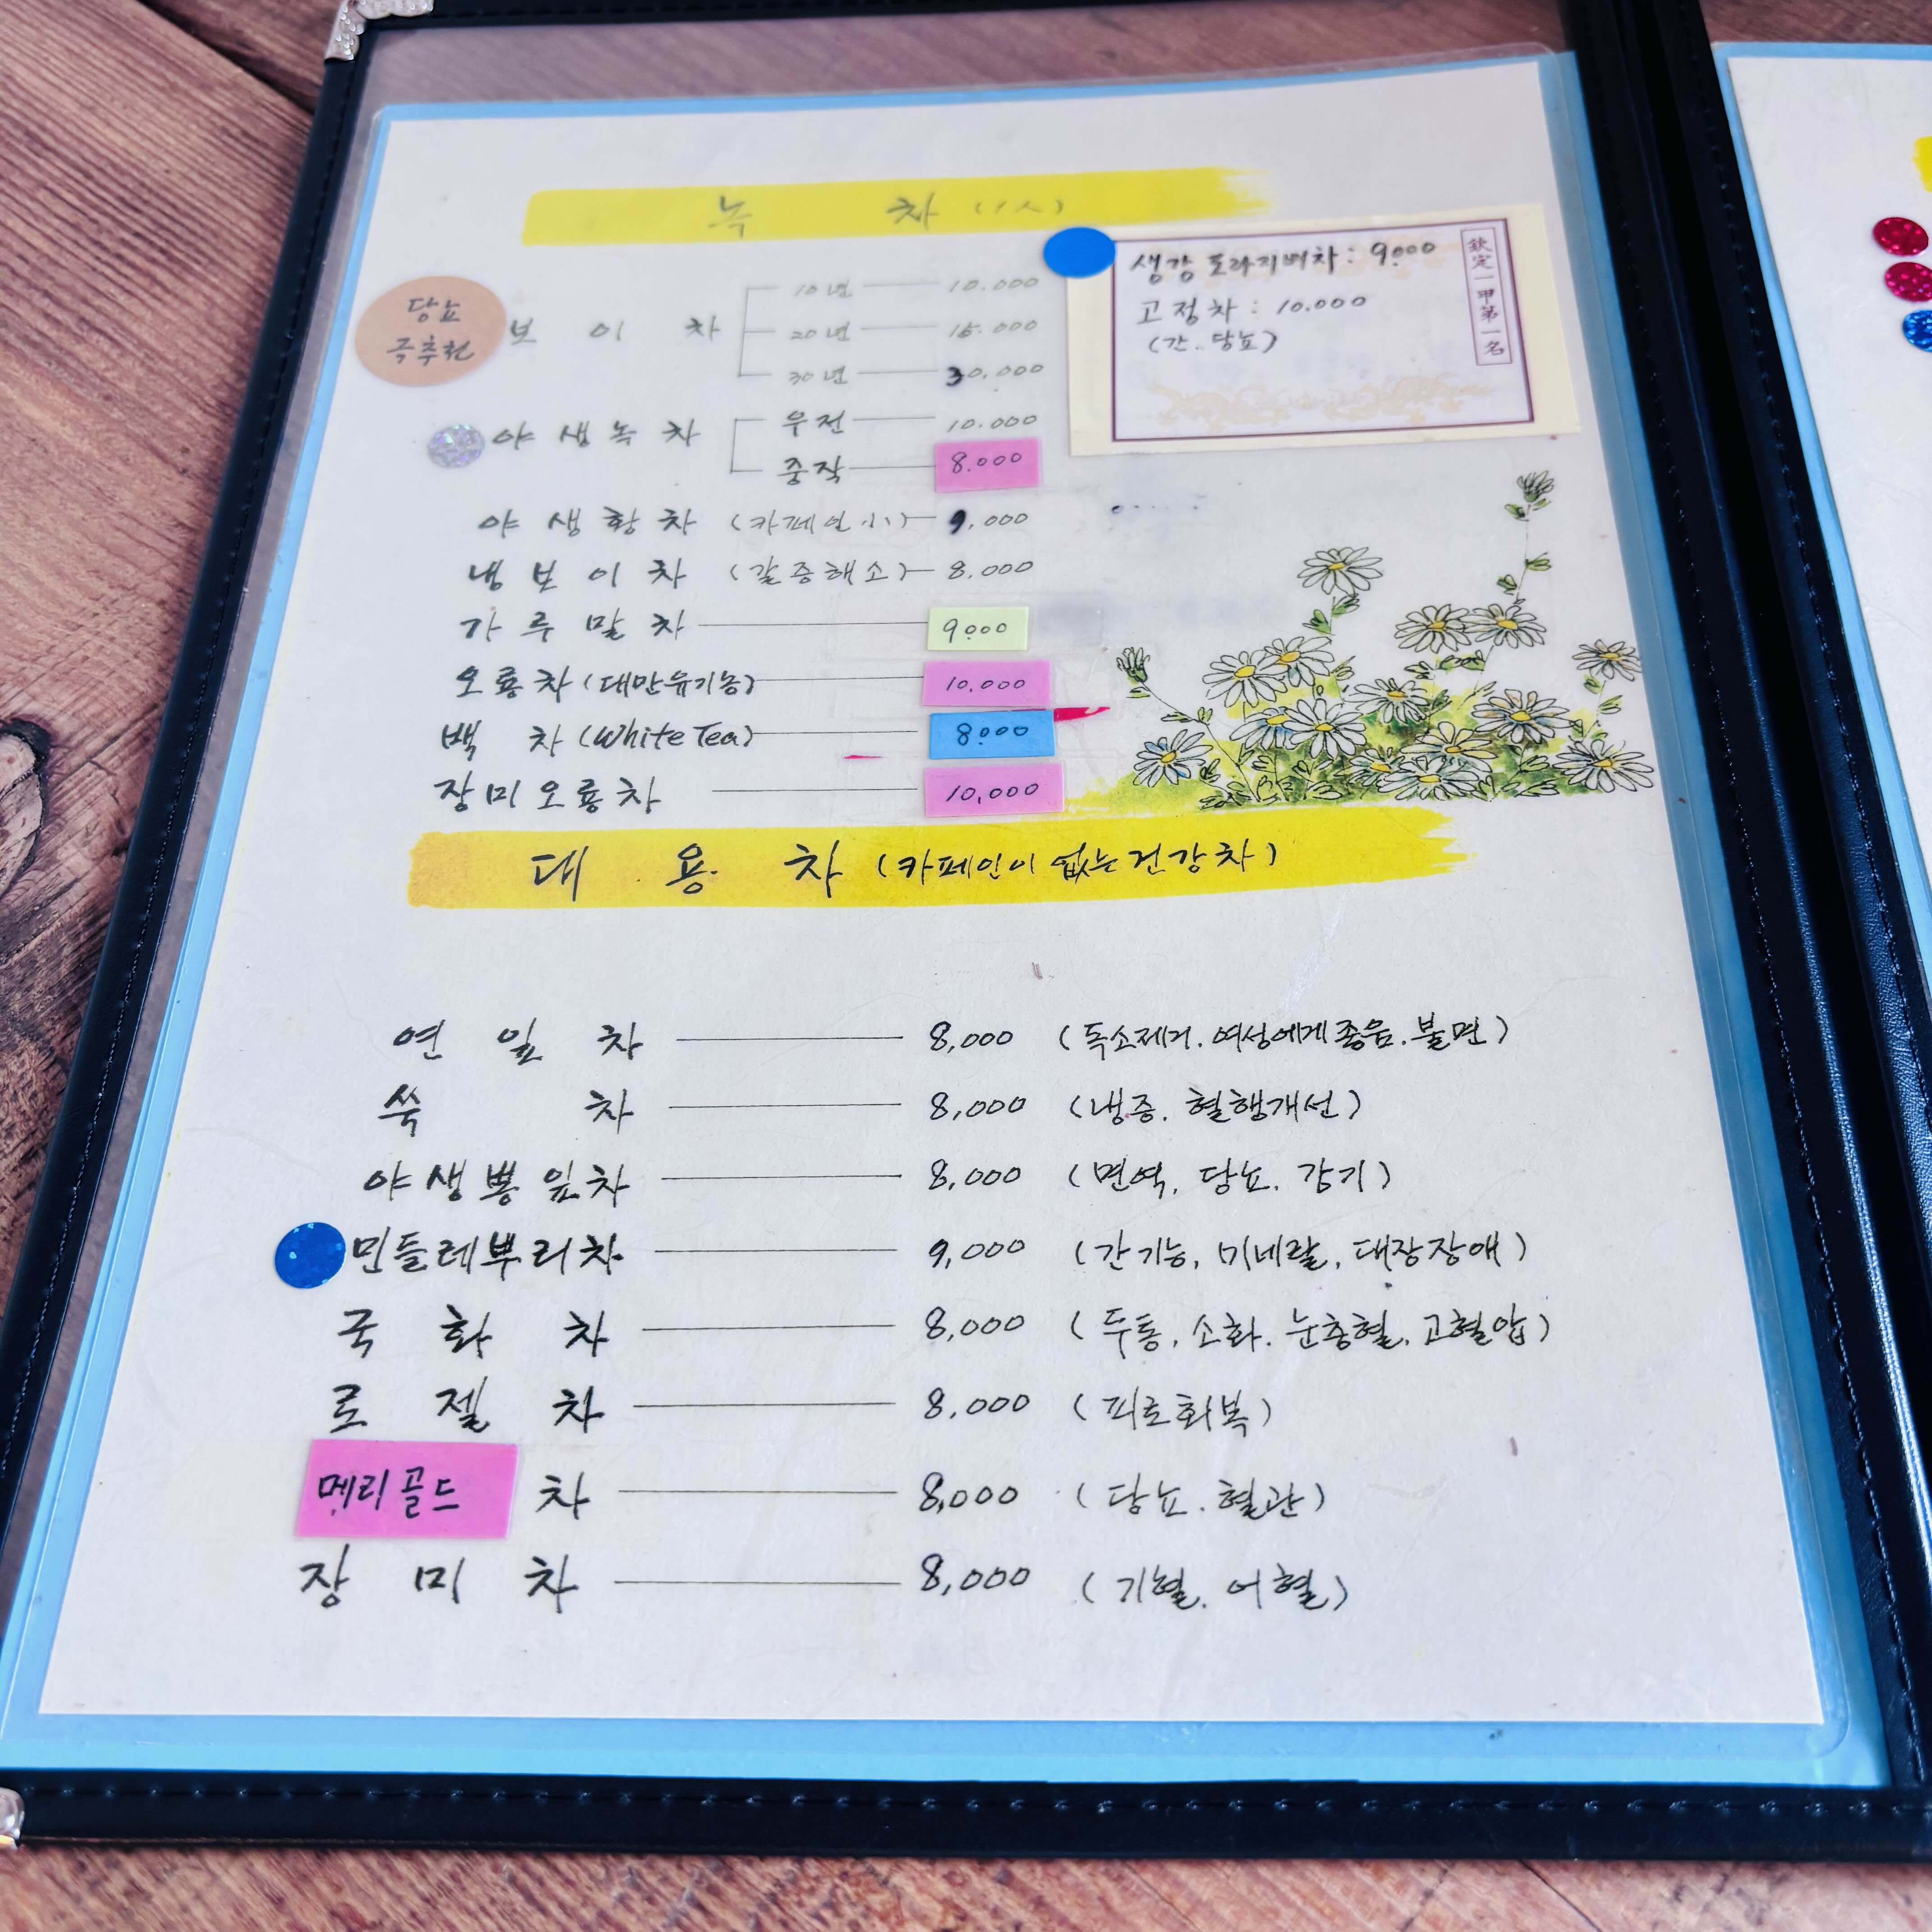 녹 차 (1人)
당뇨
극추천
보 이 차
10년 10.000
20년 15.000
30년 30.000
생강 도라지배차 : 9.000
고정차 : 10.000
(간. 당뇨)
欽定一甲第一名
야생녹차
우전 10.000
중작 8.000
야생황차 (카페인 小) 9,000
냉보이차 (갈증해소) 8,000
가루말차 9.000
오룡차 (대만유기농) 10,000
백 차 (White Tea) 8.000
장미오룡차 10,000
대 용 차 (카페인이 없는 건강차)
연 잎 차 8,000 (독소제거. 여성에게 좋음. 불면)
쑥 차 8,000 (냉증. 혈행개선)
야생뽕잎차 8,000 (면역, 당뇨. 감기)
민들레뿌리차 9,000 (간기능, 미네랄, 대장장애)
국 화 차 8,000 (두통, 소화. 눈충혈, 고혈압)
로 젤 차 8,000 (피로회복)
메리골드 차 8,000 (당뇨. 혈관)
장 미 차 8,000 (기혈. 어혈)